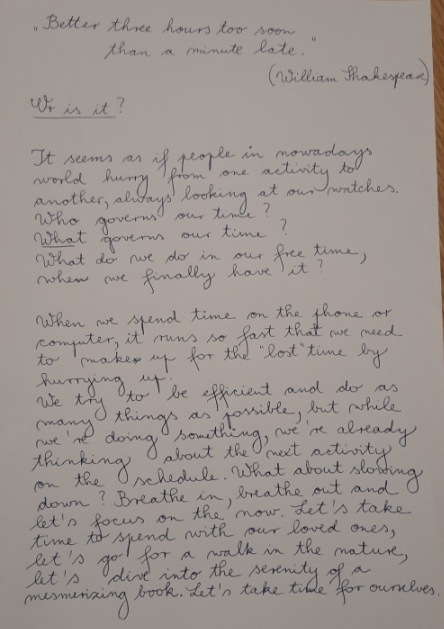 „Better three hours too soon
than a minute late."
(William Shakespeare)
Or is it?
It seems as if people in nowadays
world hurry from one activity to
another, always looking at our watches.
Who governs our time?
What governs our time?
What do we do in our free time,
when we finally have it?
When we spend time on the phone or
computer, it runs so fast that we need
to make up for the "lost" time by
hurrying up.
We try to be efficient and do as
many things as possible, but while
we're doing something, we're already
thinking about the next activity
on the schedule. What about slowing
down? Breathe in, breathe out and
let's focus on the now. Let's take
time to spend with our loved ones,
let's go for a walk in the nature,
let's dive into the serenity of a
mesmerizing book. Let's take time for ourselves.